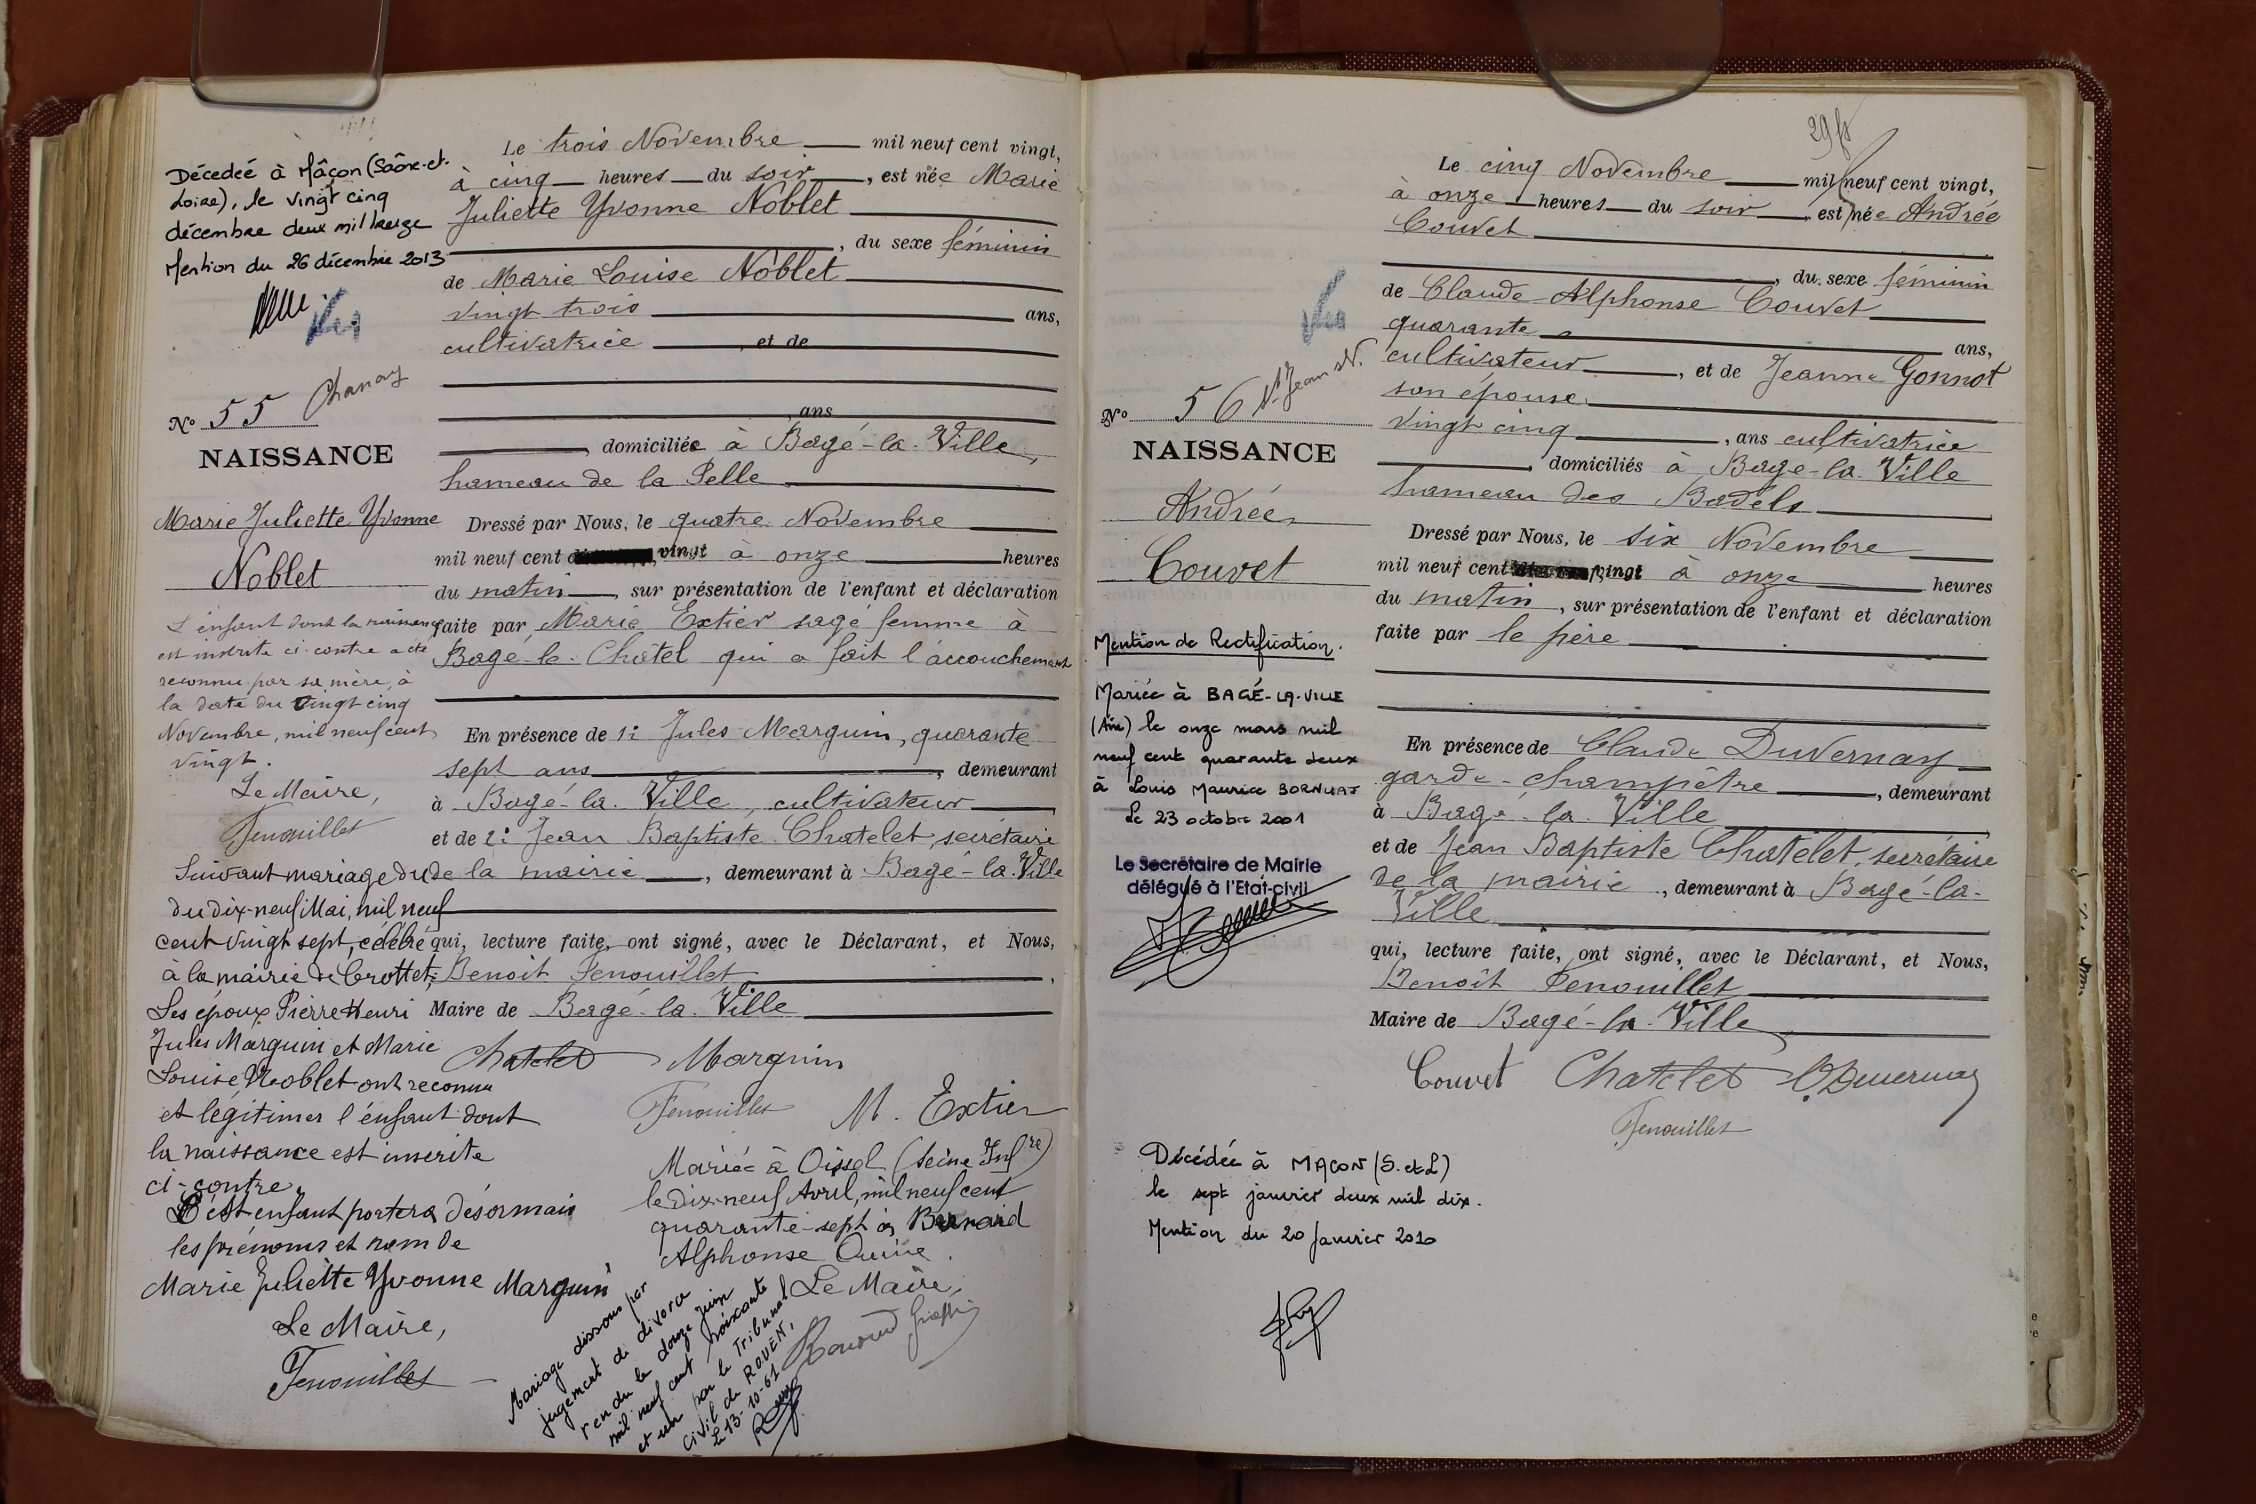 Décedée à Mâcon (Saône-et-
Loire), le vingt cinq
décembre deux mil treize
Mention du 26 décembre 2013
Vu
Nº 55 Chanay
NAISSANCE
Marie Juliette Yvonne
Noblet
L'enfant dont la naissance
est inscrite ci-contre a été
reconnu par sa mère, à
la date du vingt cinq
Novembre, mil neuf cent
vingt.
Le Maire,
Fenouillet
Suivant mariage du
du dix-neuf Mai, mil neuf
cent vingt sept, célébré
à la mairie de Crottet,
Les époux Pierre Henri
Jules Marguin et Marie
Louise Noblet ont reconnu
et légitimer l'enfant dont
la naissance est inscrite
ci-contre.
Cet enfant portera désormais
les prénoms et nom de
Marie Juliette Yvonne Marguin
Le Maire,
Fenouillet
Le trois Novembre mil neuf cent vingt,
à cinq heures du soir, est née Marie
Juliette Yvonne Noblet
, du sexe féminin
de Marie Louise Noblet
vingt trois ans,
cultivatrice et de
, ans
, domiciliée à Bagé-la-Ville,
hameau de la Pelle
Dressé par Nous, le quatre Novembre
mil neuf cent vingt à onze heures
du matin, sur présentation de l'enfant et déclaration
faite par Marie Extier sage femme à
Bagé-le-Chatel qui a fait l'accouchement
En présence de 1: Jules Marguin, quarante
sept ans, demeurant
à Bagé-la-Ville, cultivateur
et de 2: Jean Baptiste Chatelet, secrétaire
de la mairie, demeurant à Bagé-la-Ville
qui, lecture faite, ont signé, avec le Déclarant, et Nous,
Benoit Fenouillet,
Maire de Bagé-la-Ville
Chatelet Marguin
Fenouillet M. Extier
Mariée à Oissel (Seine Infre)
le dix-neuf Avril, mil neuf cent
quarante-sept à Bernard
Alphonse
Le Maire,
Mariage dissous par
jugement de divorce
rendu le douze Juin
mil neuf cent soixante
et un par le Tribunal
Civil de ROUEN,
Le 13-10-61
29 fs
Le cinq Novembre mil neuf cent vingt,
à onze heures du soir, est née Andrée
Couvet
, du sexe féminin
de Claude Alphonse Couvet
quarante ans,
cultivateur, et de Jeanne Gonnot
son épouse
vingt cinq, ans cultivatrice
, domiciliés à Bagé-la-Ville
hameau des Badels
Dressé par Nous, le six Novembre
mil neuf cent vingt à onze heures
du matin, sur présentation de l'enfant et déclaration
faite par le père
En présence de Claude Duvernay
garde-champêtre, demeurant
à Bagé-la-Ville
et de Jean Baptiste Chatelet, secrétaire
de la mairie, demeurant à Bagé-la-
Ville
qui, lecture faite, ont signé, avec le Déclarant, et Nous,
Benoît Fenouillet
Maire de Bagé-la-Ville
Couvet Chatelet C. Duvernay
Fenouillet
Vu
Nº 56 St Jean N.
NAISSANCE
Andrée
Couvet
Mention de Rectification.
Mariée à BAGÉ-LA-VILLE
(Ain) le onze mars mil
neuf cent quarante deux
à Louis Maurice
Le 23 octobre 2001
Le Secrétaire de Mairie
délégué à l'Etat-civil
Décédée à MACON (S.et.L)
le sept janvier deux mil dix.
Mention du 20 Janvier 2010